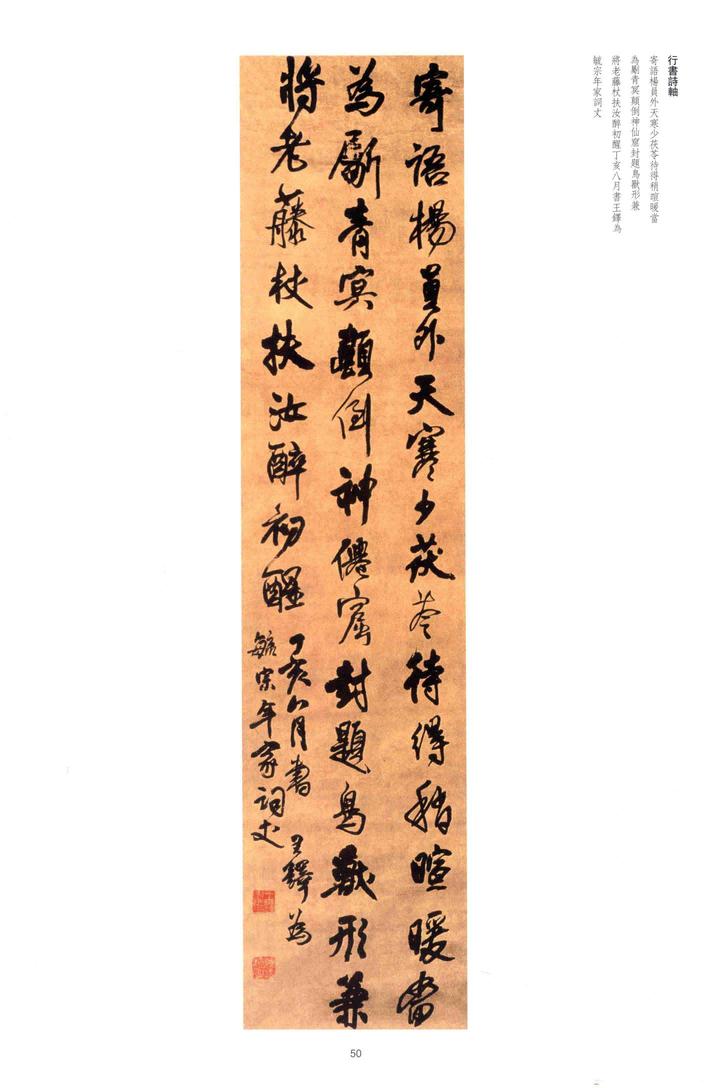 行書詩軸
寄語楊員外天寒少茯苓待得稍暄暖當
為劚青冥顛倒神仙窟封題鳥獸形兼
將老藤杖扶汝醉初醒丁亥八月書王鐸為
毓宗年家詞丈
寄語楊員外天寒少茯苓待得稍暄暖當
為劚青冥顛倒神僊窟封題鳥獸形兼
將老藤杖扶汝醉初醒
丁亥八月書王鐸為
毓宗年家詞丈
50